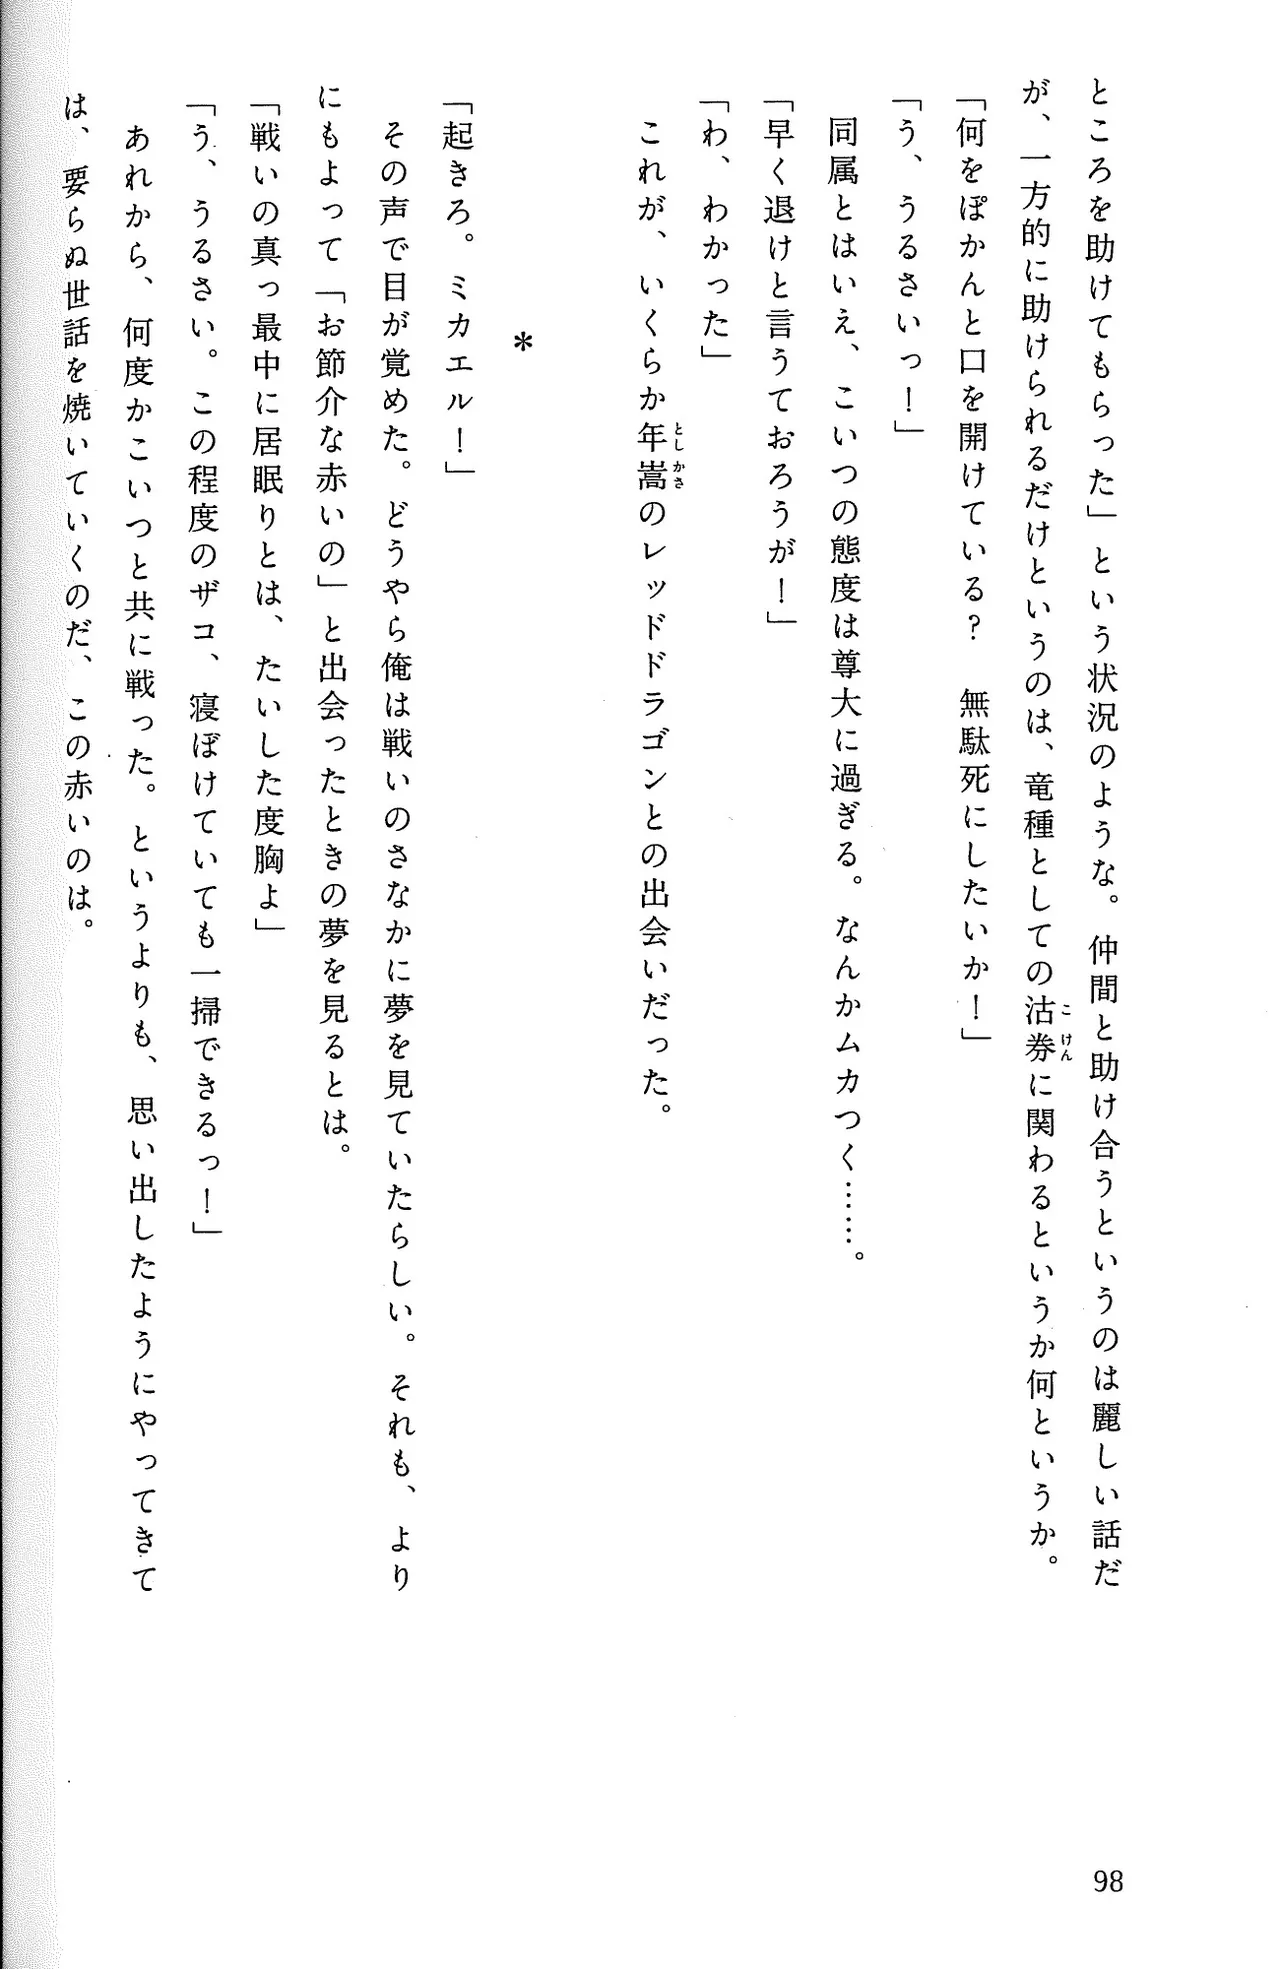 ところを助けてもらった」という状況のような。仲間と助け合うというのは麗しい話だ
が、一方的に助けられるだけというのは、竜種としての沽券に関わるというか何というか。
こけん
「何をぽかんと口を開けている？　無駄死にしたいか！」
「う、うるさいっ！」
同属とはいえ、こいつの態度は尊大に過ぎる。なんかムカつく……。
「早く退けと言うておろうが！」
「わ、わかった」
これが、いくらか年嵩のレッドドラゴンとの出会いだった。
としかさ
＊
「起きろ。ミカエル！」
その声で目が覚めた。どうやら俺は戦いのさなかに夢を見ていたらしい。それも、より
にもよって「お節介な赤いの」と出会ったときの夢を見るとは。
「戦いの真っ最中に居眠りとは、たいした度胸よ」
「う、うるさい。この程度のザコ、寝ぼけていても一掃できるっ！」
あれから、何度かこいつと共に戦った。というよりも、思い出したようにやってきて
は、要らぬ世話を焼いていくのだ、この赤いのは。
98